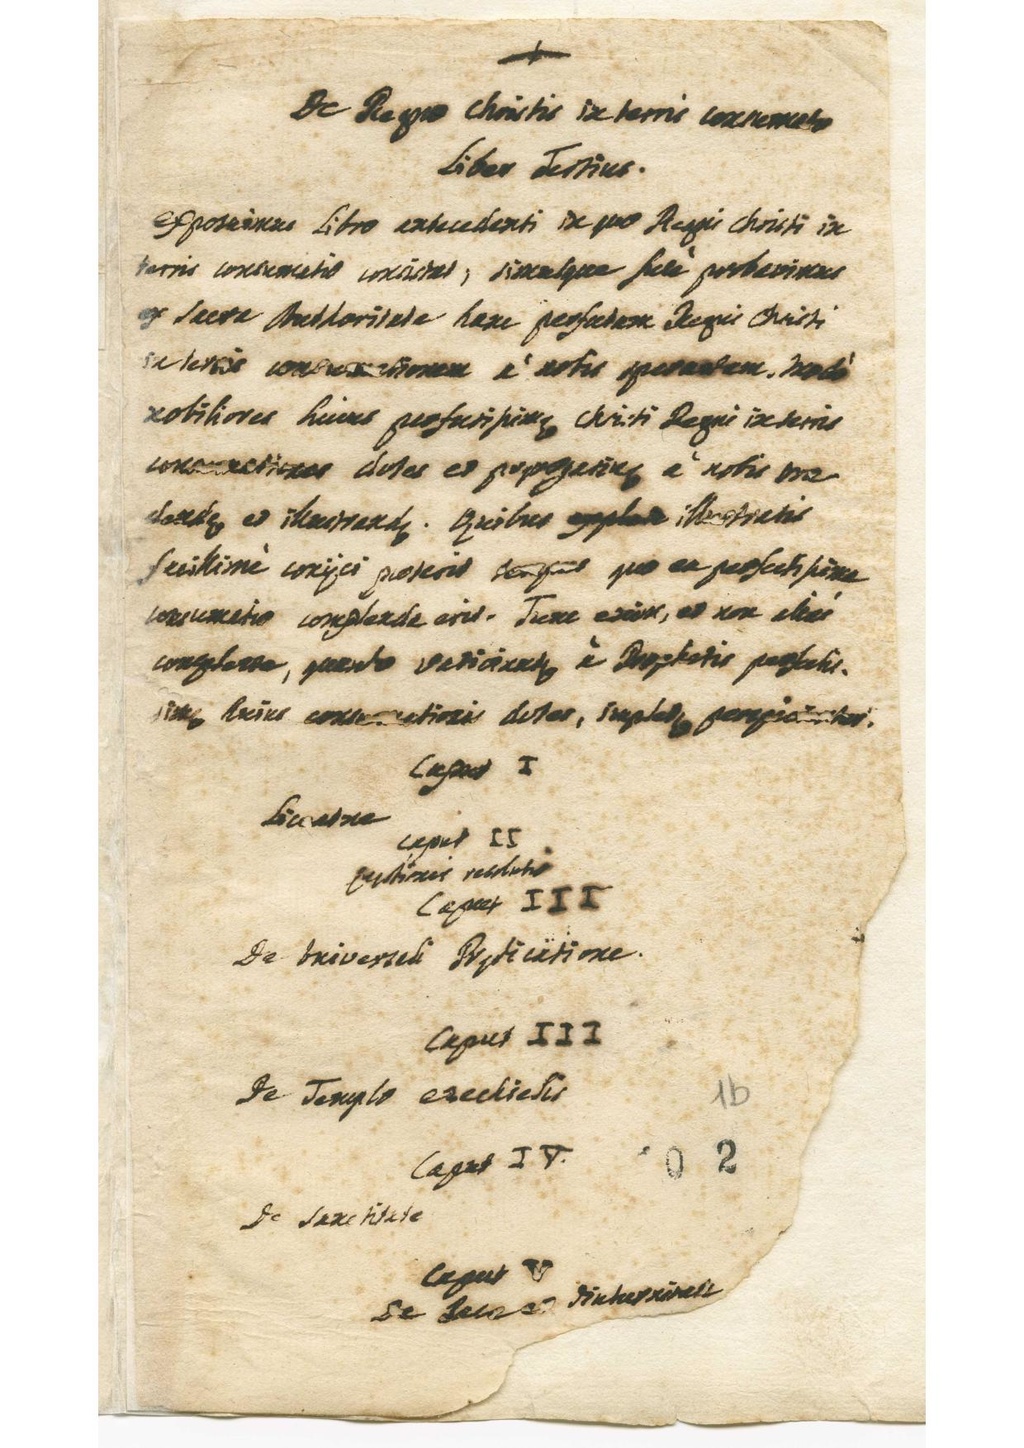 De Regno Christi in terris consummato
Liber Tertius.
Exposuimus Libro antecedenti in quo Regni Christi in
terris consumatio consistat, simulque fusè probavimus
ex Sacra Authoritate hanc perfectam Regni Christi
in terris consummationem à nobis sperandam. Modò
nobiliores huius perfectissimę Christi Regni in terris
consummationis dotes et prerogativę à nobis tra
dendę et illustrandę. Quibus illustratis
facillimè conijci poterit tempus quo ea perfectissima
consumatio complenda erit. Tunc enim, et non aliàs
complenda, quando vaticinatę à Prophetis perfectis-
simę huius consummationis dotes, impletę perspicientur.
Caput I
Caput II
questionis resolutio
Caput III
De universali Prędicatione.
Caput III
De Templo ezechielis
1b
Caput IV.
0 2
De sanctitate
Caput V
De Pace et